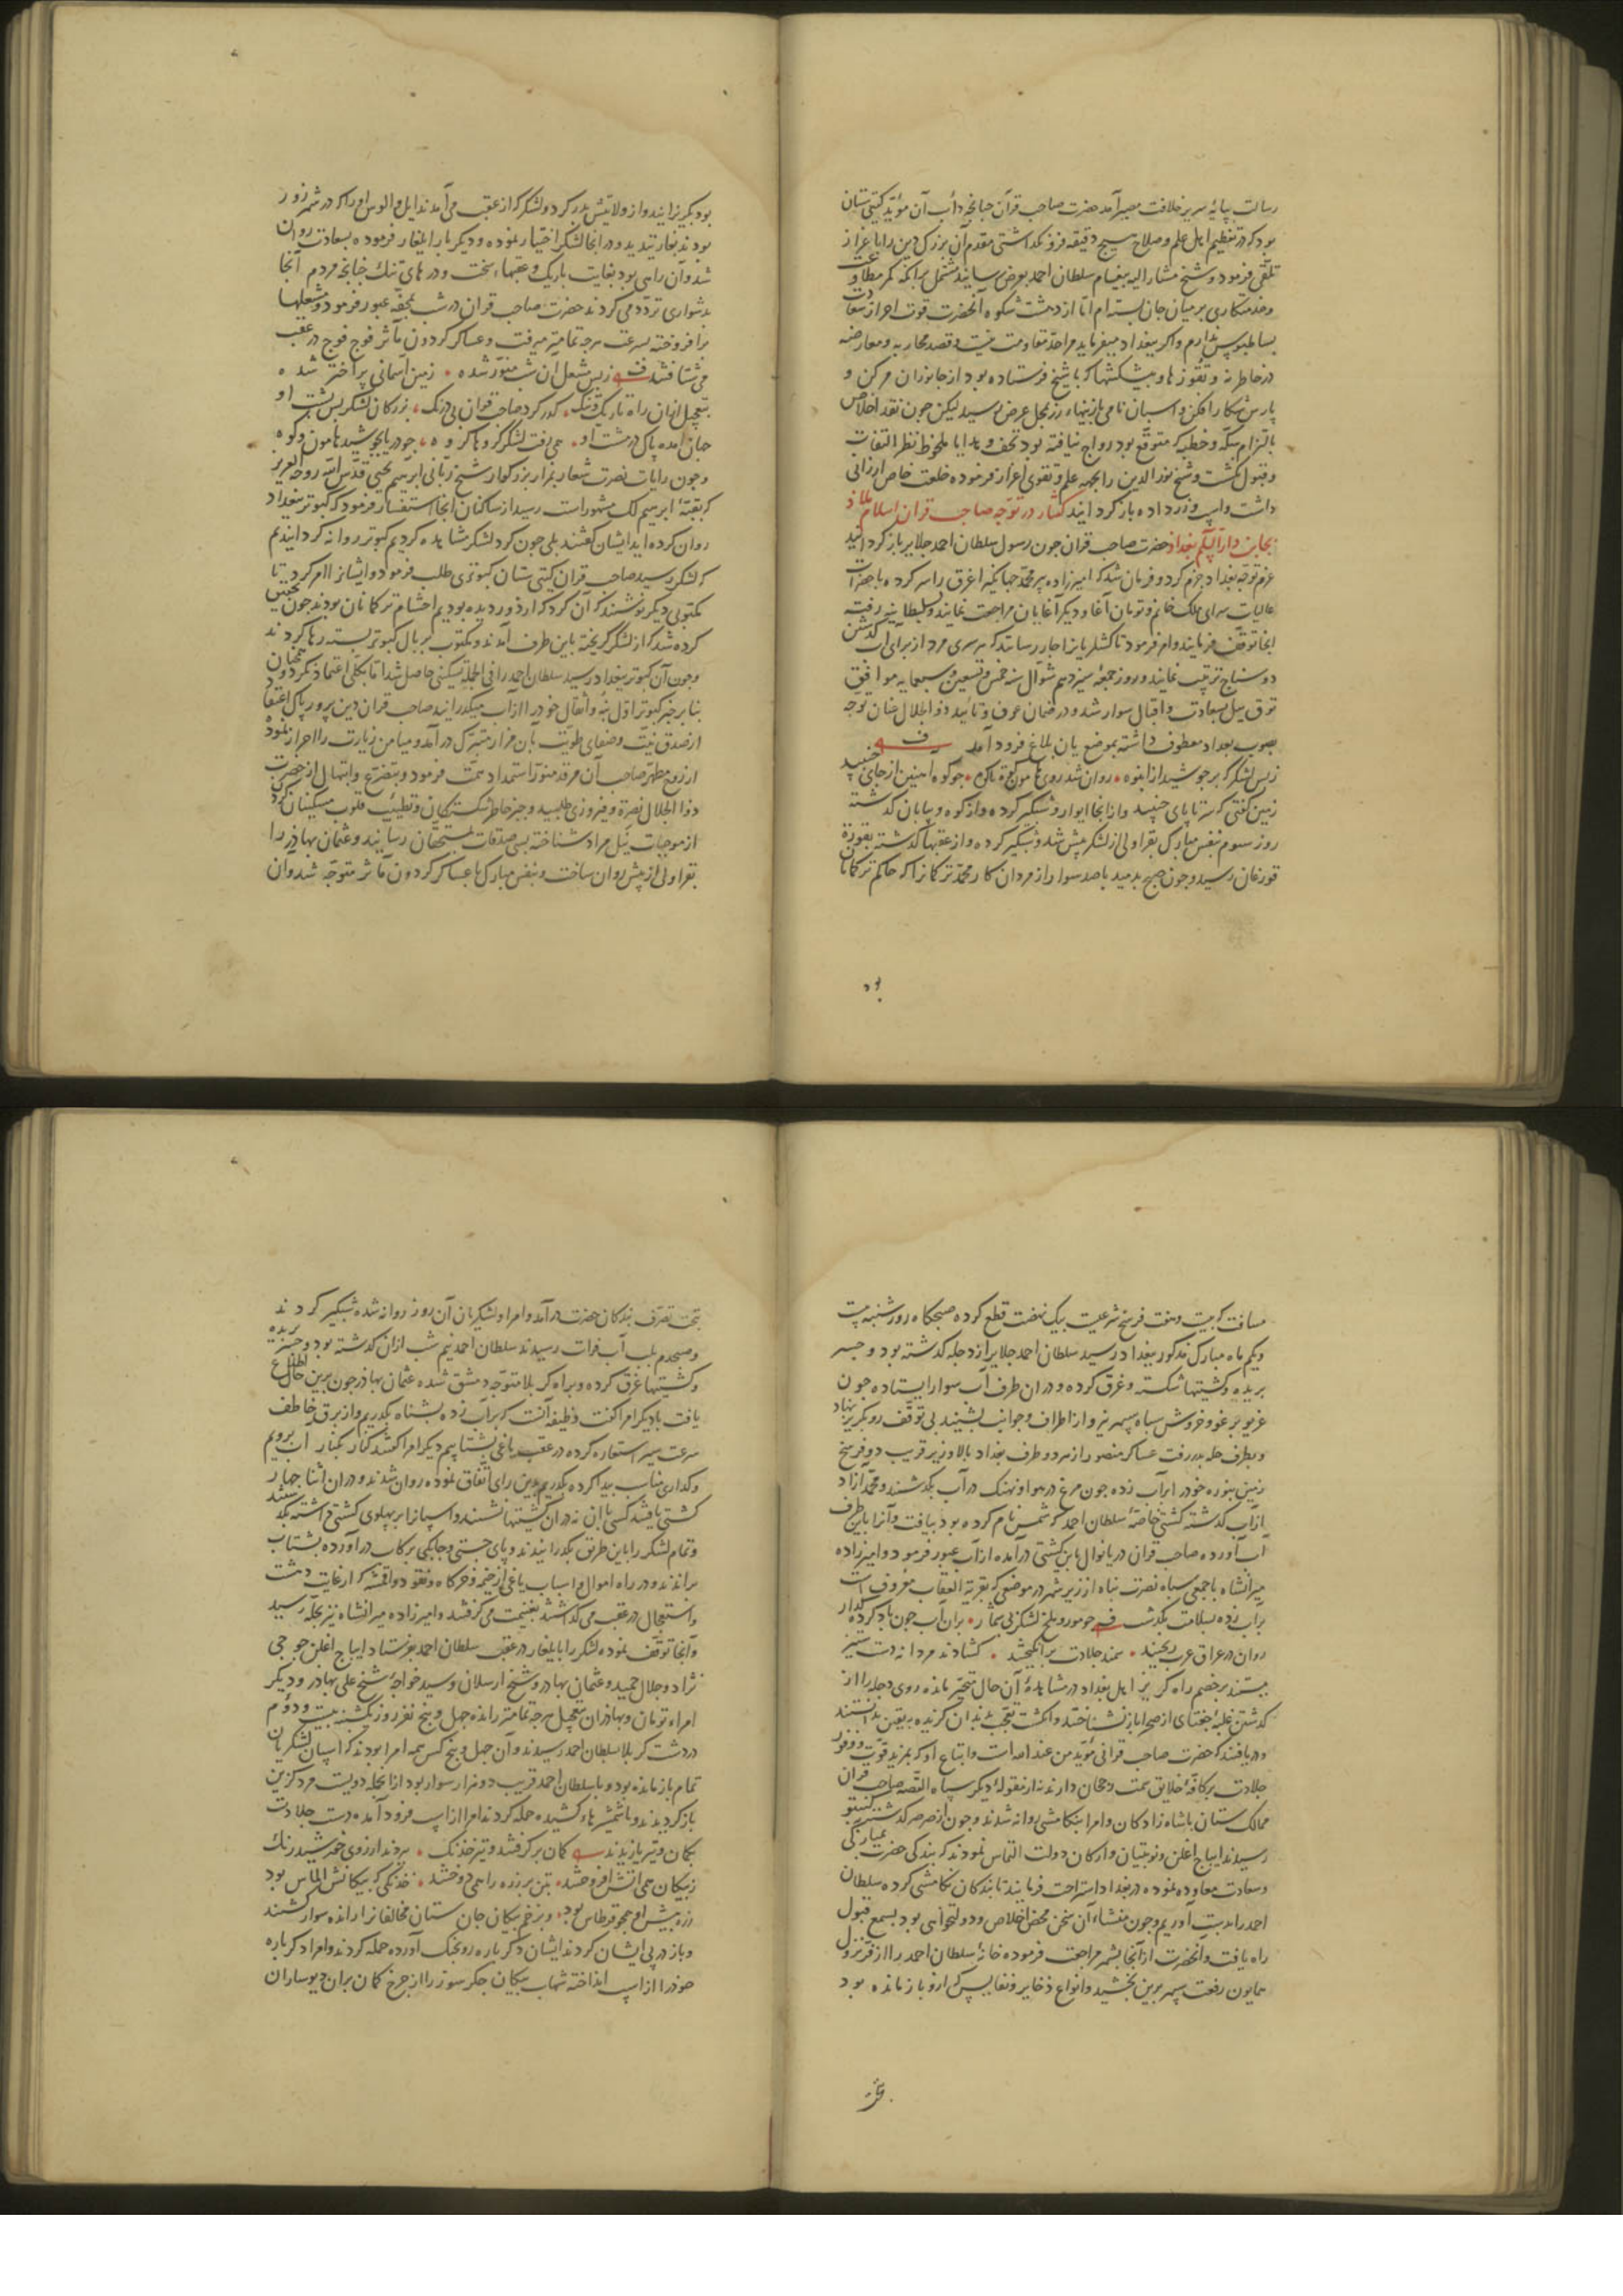 رسالت بپایۀ سریر خلافت مصیر آمد حضرت صاحب قران چنانچه دأب آن مؤید کیتی ستان
بود که در تعظیم اهل علم و صلاح هیچ دقیقه فرو نکذاشتی مقدم آن بزرک دین را باعزاز
تلقی فرمود و شیخ مشار الیه پیغام سلطان احمد بعرض رسانید مشتمل برانکه کمر مطاوعت
و خدمتکاری بر میان جان بسته ام اما از دهشت شکوه آنحضرت قوت احراز سعادت
بساط بوس ندارم و اکر ببغداد میفرماید مرا حد مقاومت نیست و قصد محاربه و معارضه
در خاطر نه و تقوزها و پیشکشها که با شیخ فرستاده بود از جانوران هرکن و
پارس شکار افکن و اسبان تامی با زینهاء زر بمحل عرض رسید لیکن چون نقد اخلاص
بالتزام سکه و خطبه که متوقع بود رواج نیافته بود تحف و هدایا ملحوظ نظر التفات
و قبول نکشت و شیخ نور الدین را بجهة علم و تقوی اعزاز فرموده خلعت خاص ارزانی
داشت و اسپ و زر داده باز کردانید کفتار در توجه صاحب قران اسلام ملاذ
بجانب دار السلام بغداد حضرت صاحب قران چون رسول سلطان احمد جلایر باز کردانید
عزم توجه بغداد جزم کرد و فرمان شد که امیرزاده پیر محمد جهانکیر اغرق را سر کرده با حضرات
عالیات سرای ملک خانم و تومان آغا و دیکر آغایان مراجعت نمایند و بسلطانیه رفته
انجا توقف فرمایند و امر فرمود تا کشلریان جار رسانند که هر سری مرد از برای آب کذشتن
دو سناج ترتیب نمایند و روز جمعه سیزدهم شوال سنه خمس و تسعین و سبعمایه موافق
توق ییل بسعادت و اقبال سوار شد و در ضمان عون و تائید ذو الجلال عنان توجه
بصوب بغداد معطوف داشته بموضع یان بلاغ فرود آمد
ز بس لشکر که بر جوشید از انبوه روان شد روی هامون کوه تا کوه جو کوه آهنین از جای جنبید
زمین کفتی که سرتاپای جنبید و از انجا ایوار و شبکیر کرده و از کوه و بیابان کذشته
روز سیوم بنفس مبارک بقراولی از لشکر پیش شد و شبکیر کرده و از عقبها کذشته بقوره
قورغان رسید و چون صبح بدمید با صد سوار از مردان کار محمد ترکمانرا که حاکم ترکمانان
بود
بود بکریزانید و از ولایتش بدر کرد و لشکر که از عقب می آمدند ایل و الوس او را که در شهرزور
بودند بغارتیدند و در انجا لشکر اختیار نموده و دیکر بار ایلغار فرموده بسعادت روان
شد و آن راهی بود بغایت باریک و عقبهاء سخت و درهای تنک چنانچه مردم آنجا
بدشواری تردد می کردند حضرت صاحب قران در شب بمحفه عبور فرمود و مشعلها
برافروخته بسرعت هرچه تمامتر میرفت و عساکر کردون مآثر فوج فوج در عقب
می شتافتند ز بس مشعل ان شب منور شده زمین آسمانی پر اختر شده
بتعجیل ازان راه تاریک و تنک کذر کرد صاحب قران بی درنک بزرکان لشکر پس پشت او
جهان آمده پاک در مشت او همی رفت لشکر کروها کروه جو دریا بجوشید هامون و کوه
و چون رایات نصرت شعار بمزار بزرکوار شیخ ربانی ابرهیم یحیی قدس الله روحه العزیز
که بقبۀ ابرهیم لک مشهور است رسید از ساکنان انجا استفسار فرمود که کبوتر ببغداد
روان کرده اید ایشان کفتند بلی چون کرد لشکر مشاهده کردیم کبوتر روانه کردانیدیم
که لشکر رسید صاحب قران کیتی ستان کبوتری طلب فرمود و ایشانرا امر کرد تا
مکتوبی دیکر نوشتند که آن کرد که از دور دیده بودیم احشام ترکمانان بودند چون تحقیق
کرده شد که از لشکر کریخته باین طرف آمدند و مکتوب بر بال کبوتر بسته رها کردند
و چون آن کبوتر ببغداد رسید سلطان احمد را فی الجمله تسکینی حاصل شد اما بکلی اعتماد نکرد و همچنان
بنابر خبر کبوتر اول بنه و اثقال خود را از آب میکذرانید صاحب قران دین پرور پاک اعتقاد
از صدق نیت و صفای طویت بآن مزار متبرک در آمد و میامن زیارت را احراز نمود
از روح مطهر صاحب آن مرقد منور استمداد همت فرمود و بتضرع و ابتهال از حضرت
ذو الجلال نصرة و فیروزی طلبید و جبر خاطر شکستکان و تطییب قلوب مسکینان کرد
از موجبات نیل مراد شناخته بسی صدقات بمستحقان رسانید و عثمان بهادر را
بقراولی از پیش روان ساخت و بنفس مبارک با عساکر کردون مآثر متوجه شد و آن
مسافت که بیست و هفت فرسخ شرعیست بیک نهضت قطع کرده صبحکاه روز شنبه بیست
و یکم ماه مبارک مذکور ببغداد رسید سلطان احمد جلایر از دجله کذشته بود و جسر
بریده و کشتیها شکسته و غرق کرده و دران طرف آب سوار ایستاده چون
غریو برغو و خروش سپاه سپهر نیرو از اطراف و جوانب بشنید بی توقف رو بکریز نهاد
و بطرف حله بدر رفت عساکر منصور از هر دو طرف بغداد بالا و زیر قریب دو فرسخ
زمین بنوره خود را بر آب زده چون مرغ در هوا و نهنک در آب بکذشتند و محمد آزاد
از آب کذشته کشتی خاصۀ سلطان احمد که شمس نام کرده بود بیافت و آنرا باین طرف
آب آورده صاحب قران دریا نوال باین کشتی در آمده از آب عبور فرمود و امیرزاده
میرانشاه با جمعی سپاه نصرت پناه از زیر شهر در موضعی که بقریة العقاب معروف است
بر آب زده بسلامت بکذشت جو مور و ملخ لشکر بی شمار بران آب چون باد کرده کذار
روان در عراق عرب ریختند سمند جلادت برانکیختند کشادند مردانه دست ستیز
ببستند بر خصم راه کریز اهل بغداد در مشاهدۀ آن حال متحیر مانده روی دجله را از
کذشتن غلبۀ جغتای از صحرا باز نشناختند و انکشت تعجب بدندان کزیده بیقین بدانستند
و دریافتند که حضرت صاحب قرانی مؤید من عند الله است و اتباع او که بمزید قوت و وفور
جلادت بر کافۀ خلایق سمت رجحان دارند نه از مقولۀ دیکر سپاه القصه صاحب قران
ممالک ستان با شاه زادکان و امرا بتکامیشی روانه شدند و چون از صرصر کذشته بکیتو
رسیدند ایباج اغلن و نوینان و ارکان دولت التماس نمودند که بندکی حضرت بمبارکی
و سعادت معاوده نموده در بغداد استراحت فرمایند تا بندکان تکامشی کرده سلطان
احمد را بدست آوریم و چون منشاء آن سخن محض اخلاص و دولتخواهی بود بسمع قبول
راه یافت و آنحضرت از آنجا بشهر مراجعت فرموده خانۀ سلطان احمد را از فر نزول
همایون رفعت سپهر برین بخشید و انواع ذخایر و نفایس که ازو باز مانده بود
بتحت تصرف بندکان حضرت در آمد و امرا و لشکریان آن روز روانه شده شبکیر کردند
و صبحدم بلب آب فرات رسیدند سلطان احمد نیم شب ازان کذشته بود و جسر بریده
و کشتیها غرق کرده و براه کربلا متوجه دمشق شده عثمان بهادر چون برین حال اطلاع
یافت با دیکر امرا کفت وظیفه آنست که بر آب زده بشناه بکذریم و از برق خاطف
سرعت سیر استعاره کرده در عقب یاغی بشتابیم دیکر امرا کفتند کنار بکنار آب برویم
و کذاری مناسب پیدا کرده بکذریم برین رای اتفاق نموده روان شدند و دران اثنا چهار
کشتی یافتند کسی با آن نه دران کشتیها نشستند و اسپانرا بر پهلوی کشتی داشته بکذشتند
و تمام لشکر را باین طریق بکذرانیدند و پای جستی و چابکی بر رکاب در آورده بشتاب
براندند و در راه اموال و اسباب یاغی از خیمه و خرکاه و نقود و اقمشه که از غایت دهشت
و استعجال در عقب می کذاشتند بغنیمت می کرفتند و امیرزاده میرانشاه نیز بحله رسید
و آنجا توقف نموده لشکر را بایلغار در عقب سلطان احمد بفرستاد ایباج اغلن جوجی
نژاد و جلال حمید و عثمان بهادر و شیخ ارسلان و سید خواجۀ شیخ علی بهادر و دیکر
امراء تومان و بهادران بتعجیل هرچه تمامتر رانده چهل و پنج نفر روز یکشنبه بیست و دوم
در دشت کربلا بسلطان احمد رسیدند و آن چهل و پنج کس همه امرا بودند که اسپان لشکریان
تمام باز مانده بود و با سلطان احمد قریب دو هزار سوار بود ازانجمله دویست مرد کزین
باز کردیدند و با شمشیرهاء کشیده حمله کردند امرا از اسپ فرود آمده دست جلادت
بکمان و تیر یازیدند کمان بر کرفتند و تیر خدنک بردند از روی خورشید رنک
ز پیکان همی آتش افروختند بتن بر زره را همی دوختند خدنکی که پیکانش الماس بود
زره پیش او همچو قرطاس بود و بزخم پیکان جان ستان مخالفانرا رانده سوار کشتند
و باز در پی ایشان کردند ایشان دکر باره رو بجنک آورده حمله کردند و امرا دکر باره
خود را از اسپ انداخته شهاب پیکان جکر سوز را از چرخ کمان بران دیوساران